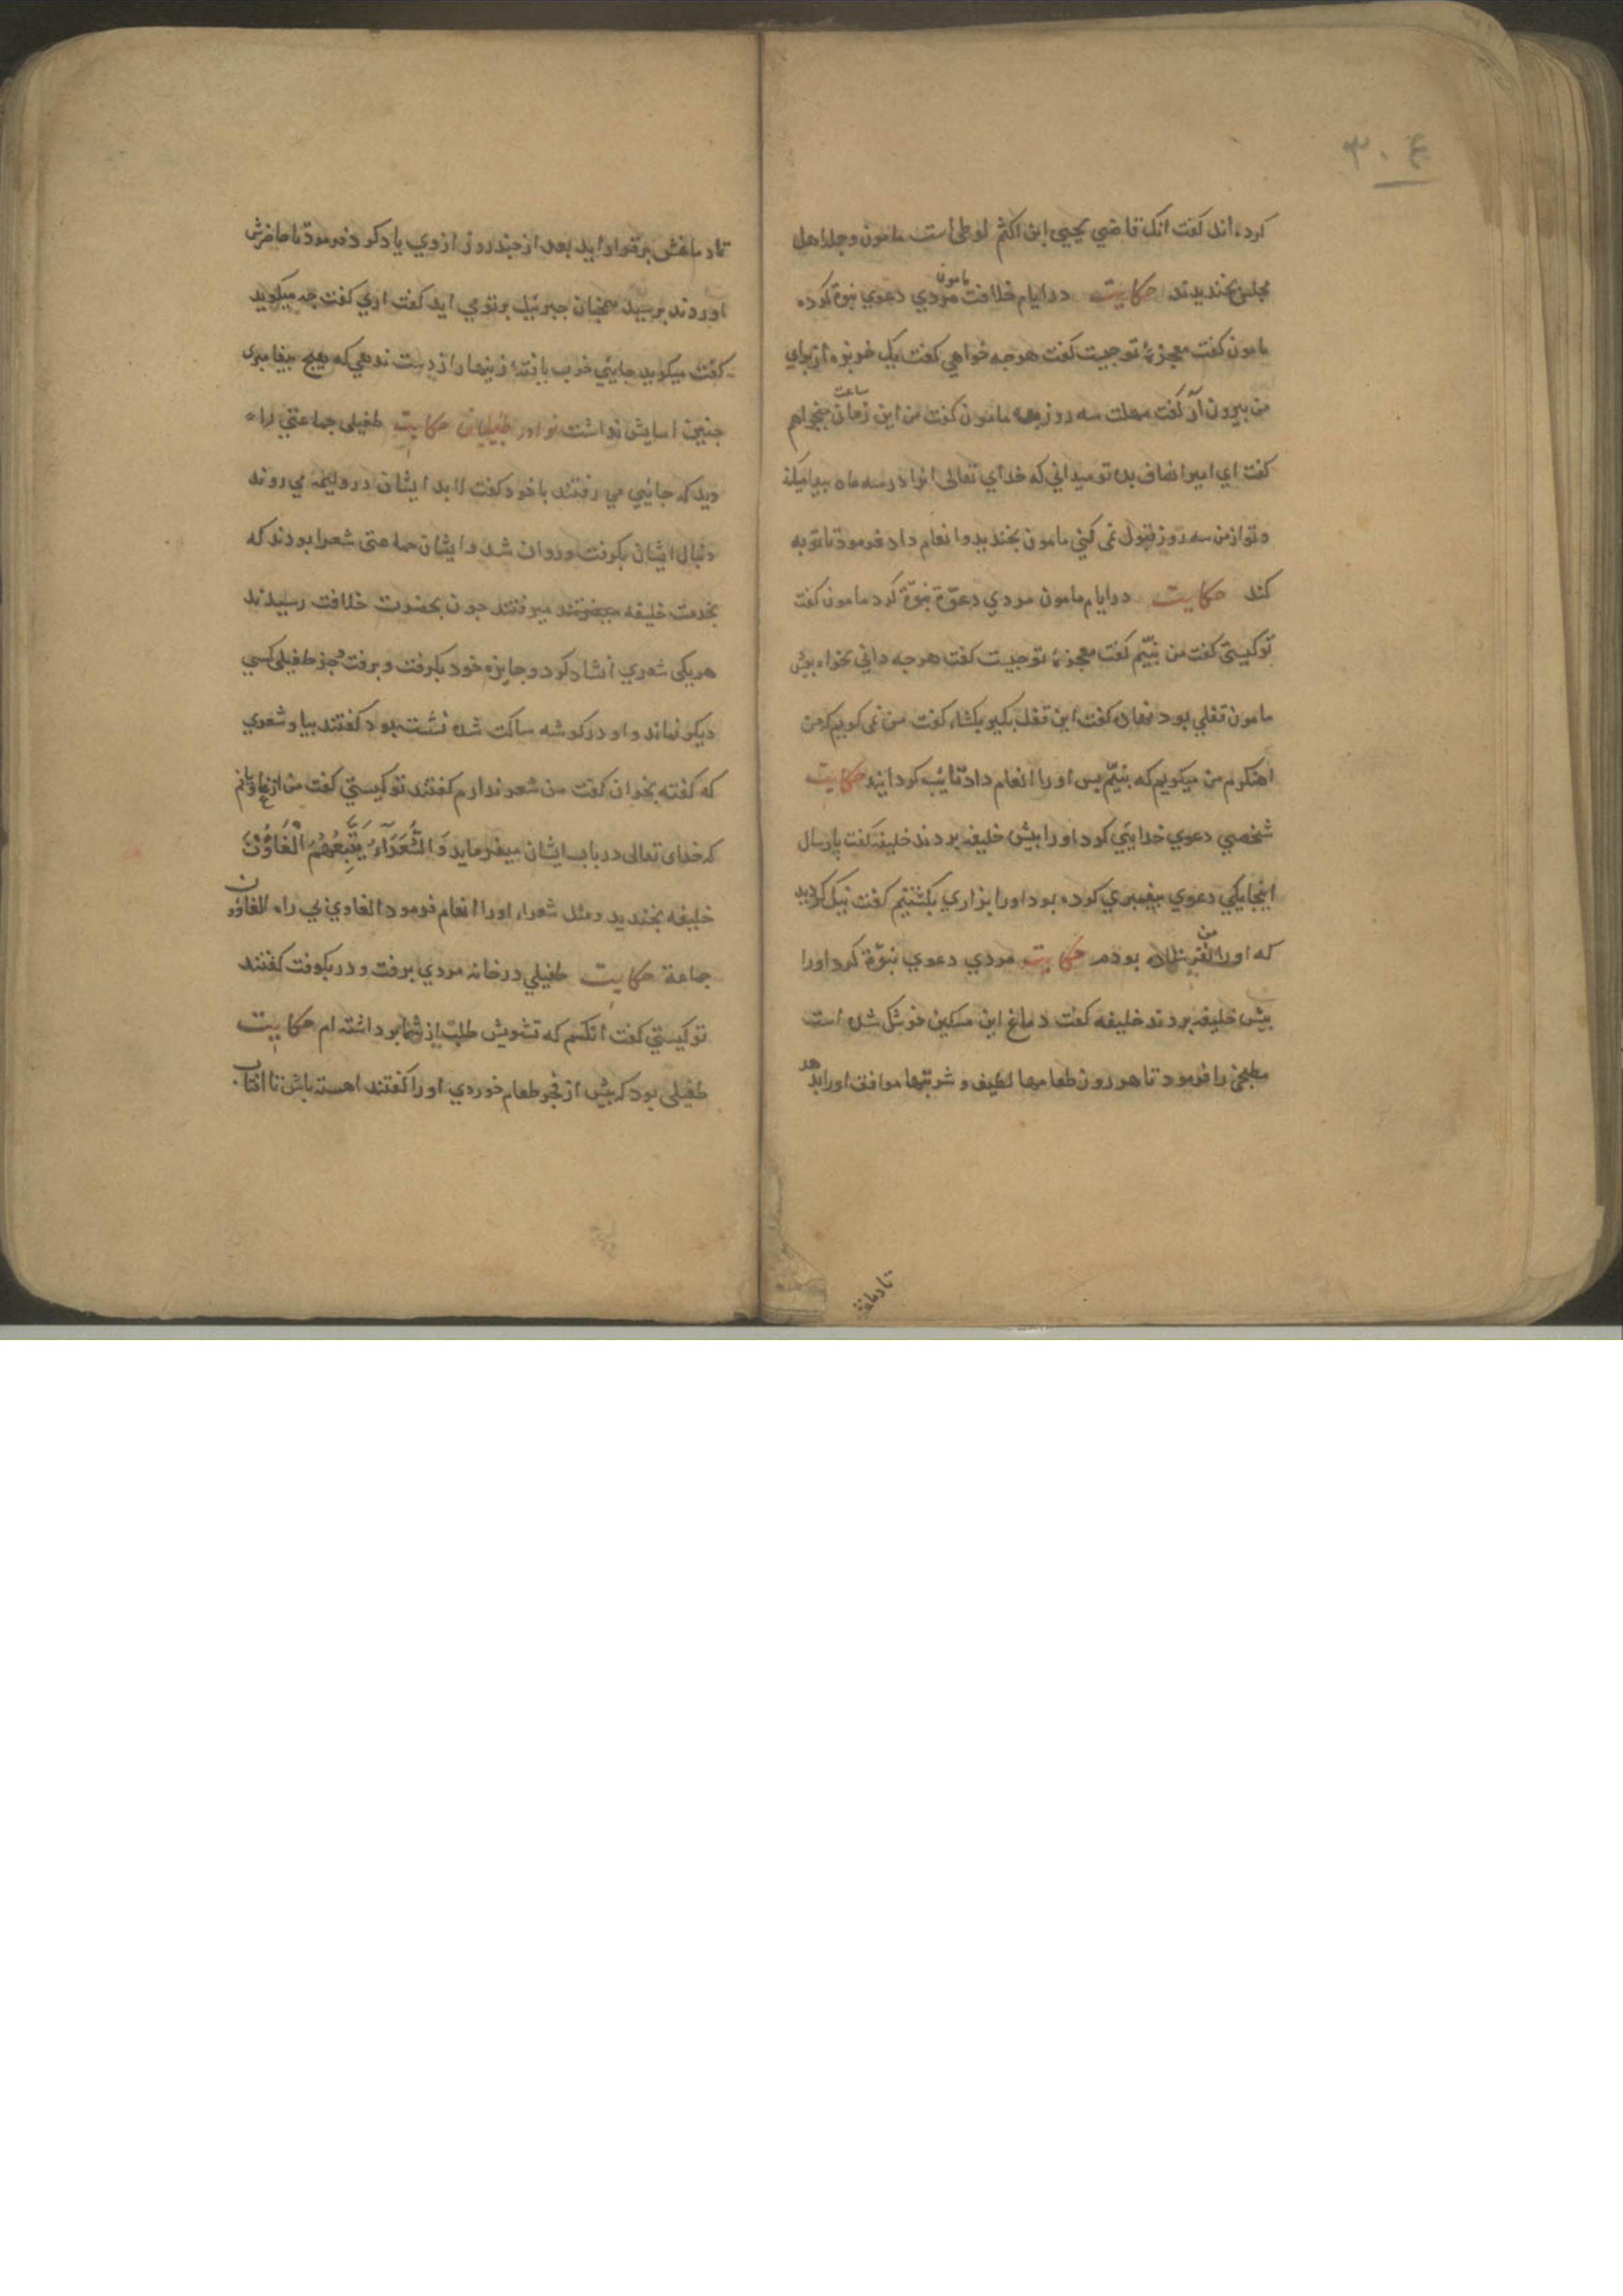 ۳۰۴
کرده‌اند گفت انک قاضي یحیی ابن اکثم لوطی است مامون و جمله اهل
مجلس بخندیدند حکایت در ایام خلافت مامون مردي دعوي نبوة کرده
مامون گفت معجزهٔ تو چیست گفت هر چه خواهي گفت یک خربزه از برای
من بیرون آر گفت مهلت سه روز بده مامون گفت من این زمان ساعت میخواهم
گفت اي امیر انصاف بده تو میداني که خدای تعالی انرا در سه ماه پیدا میکند
و تو از من سه روز قبول نمی کني مامون بخندید و انعام داد فرمود تا توبه
کند حکایت در ایام مامون مردي دعوة نبوة کرد مامون گفت
تو کیستی گفت من نبیّم گفت معجزهٔ تو چیست گفت هر چه داني بخواه پیش
مامون قفلي بود نهاده گفت این قفل بکیر بکشاء گفت من نمی کویم که من
اهنکرم من میکویم که نبیّم پس اورا انعام داد تایب کردانید حکایت
شخصي دعوي خدایي کرد اورا پیش خلیفه بردند خلیفه گفت پارسال
اینجا یکي دعوي پیغمبري کرده بود اورا بزاري بکشتیم گفت نیک کردید
که اورا من نفرستاده بودم حکایت مردي دعوي نبوّة کرد اورا
پیش خلیفه بردند خلیفه گفت دماغ این مسکین خوشک شده است
مطبخي را فرمود تا هر روز طعامها لطیف و شربتها موافق اورا بدهد
تا دماغش
تا دماغش برقرار اید بعد از چند روز از وي یاد کرد فرمود تا حاضرش
اوردند پرسید همچنان جبرئیل بر تو می اید گفت اري گفت چه میکوید
گفت میکوید جائي خوب یافتهٔ زینهار از دست ندهي که هیچ پیغامبری
چنین اسایش نداشت نوادر طفیلیان حکایت طفیلی جماعتي را
دید که جائیي مي رفتند با خود گفت لابد ایشان در ولیمه مي روند
دنبال ایشان بکرفت و روان شد و ایشان جماعتی شعرا بودند که
بخدمت خلیفه میرفتند چون بحضرت خلافت رسیدند
هر یکی شعري انشاد کرد و جایزه خود بکرفت و برفت و جز طفیلی کسي
دیکر نماند و او در کوشه ساکت شده نشسته بود گفتند بیا و شعري
که گفته بخوان گفت من شعر ندارم گفتند تو کیستي گفت من از غاویانم
که خدای تعالی در باب ایشان میفرماید وَالشُّعَرَاءُ یَتَّبِعُهُمُ الْغَاوُنَ
خلیفه بخندید و مثل شعراء اورا انعام فرمود الغاوي بي راه الغاوون
جماعة حکایت طفیلي در خانه مردي برفت و در بکوفت گفتند
تو کیستي گفت انکسم که تشویش طلب از شما برداشته ام حکایت
طفیلی بود که پیش از فجر طعام خوردي اورا گفتند اهسته باش تا افتاب